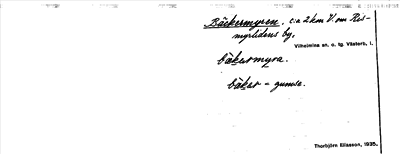 Bäckermyren, c:a 2 km V. om Ris-
myrlidens by.
Vilhelmina sn. o. tg. Västerb. l.
bäkermyra.
bäker - gumse.
Thorbjörn Eliasson, 1935.